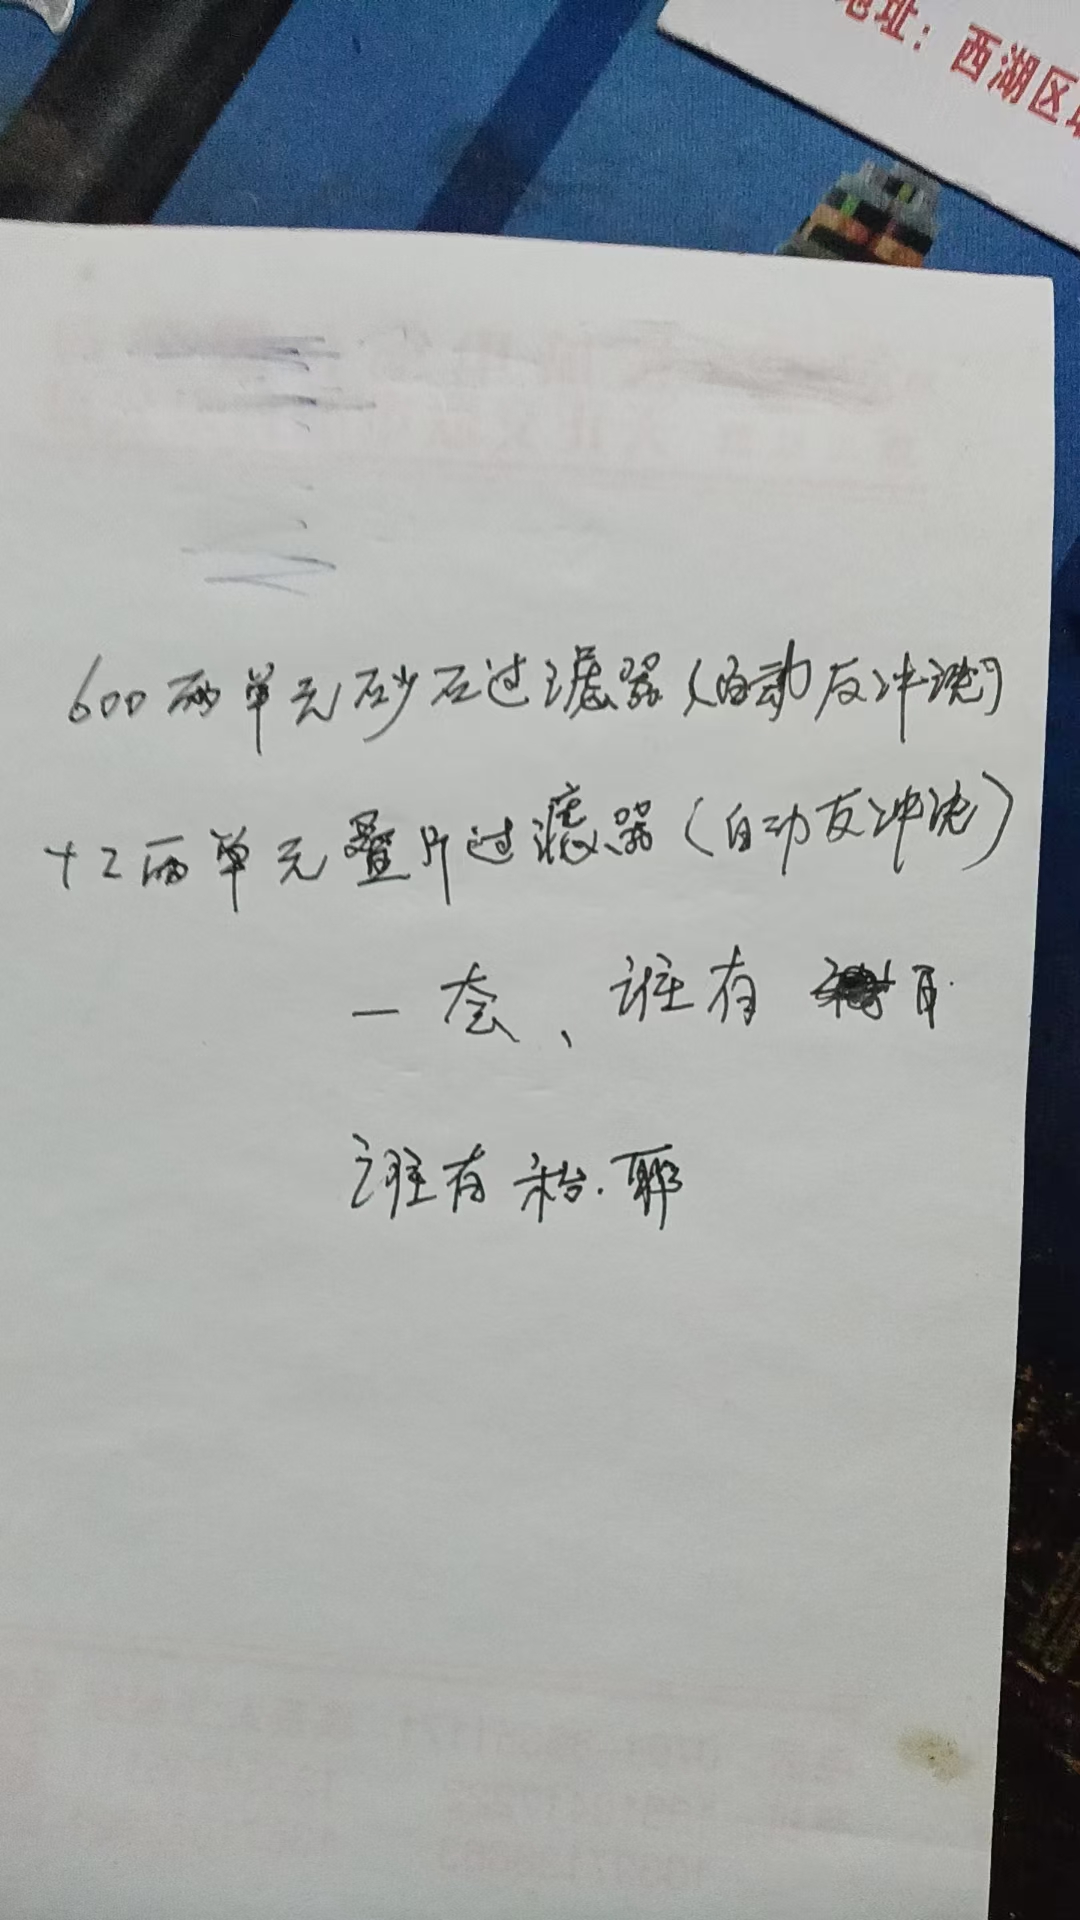 地址：西湖区
600两单元砂石过滤器（自动反冲洗）
+2两单元叠片过滤器（自动反冲洗）
一套、谁有
谁有 联